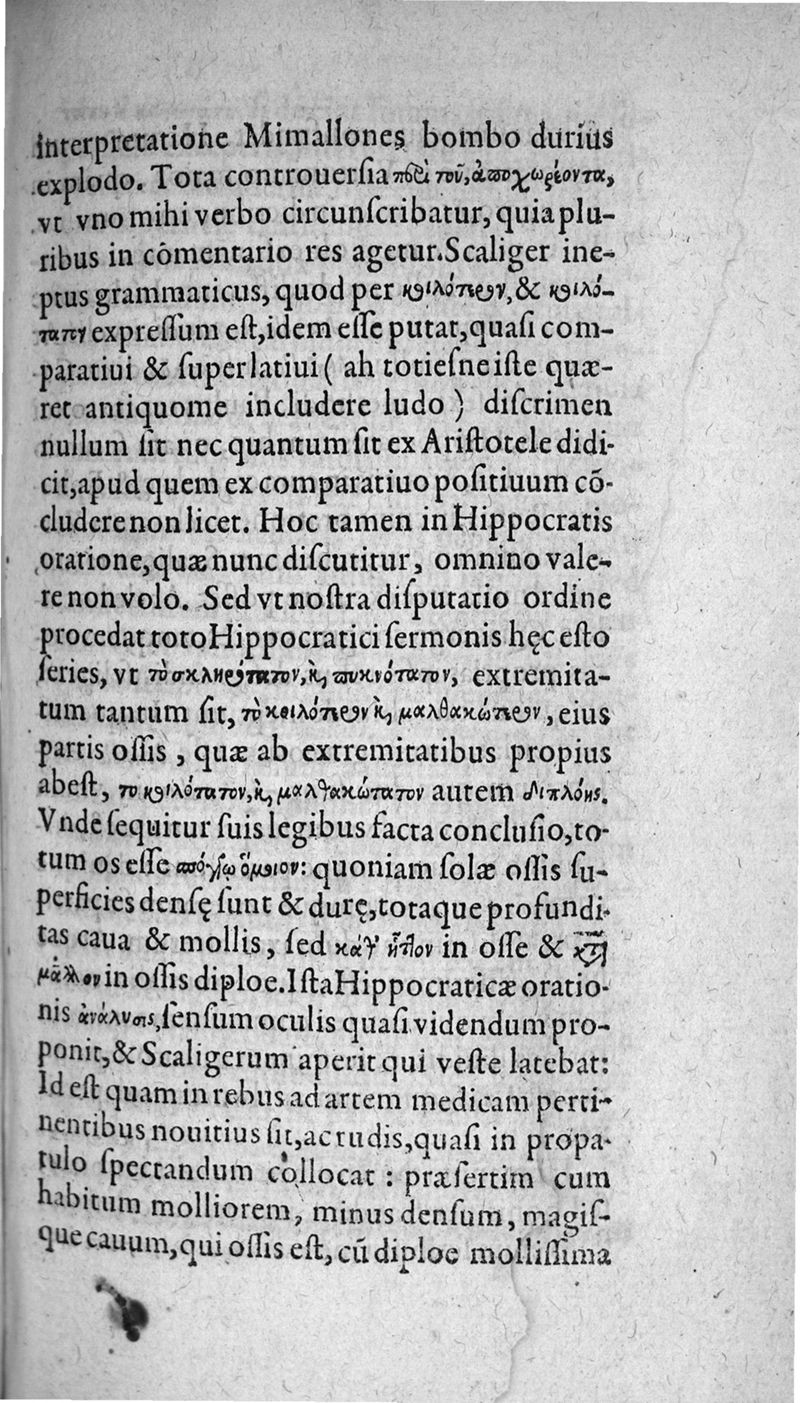 interpretatione Mimallones bombo duriùs
explodo. Tota controuersia περὶ τοῦ, ἀποχωρέοντα,
vt vno mihi verbo circunſcribatur, quia plu-
ribus in cōmentario res agetur. Scaliger ine-
ptus grammaticus, quod per κοιλότερν, & κοιλό-
τατον expreſſum eſt, idem eſſe putat, quaſi com-
paratiui & ſuperlatiui ( ah totieſne iſte quæ-
ret antiquome includere ludo ) diſcrimen
nullum ſit nec quantum ſit ex Ariſtotele didi-
cit, apud quem ex comparatiuo poſitiuum cō-
cludere non licet. Hoc tamen in Hippocratis
oratione, quæ nunc diſcutitur, omnino vale-
re non volo. Sed vt noſtra diſputatio ordine
procedat toto Hippocratici ſermonis hęc eſto
ſeries, vt τὸ σκληρότατον, καὶ πυκνότατον, extremita-
tum tantum ſit, τὸ κοιλότερον καὶ μαλθακώτερον, eius
partis oſſis , quæ ab extremitatibus propius
abeſt, το κοιλότατον, καὶ μαλθακώτατον autem διπλόης.
Vnde ſequitur ſuis legibus facta concluſio, to-
tum os eſſe σπόγγῳ ὅμοιον: quoniam ſolæ oſſis ſu-
perficies denſę ſunt & durę, totaque profundi-
tas caua & mollis, ſed κάθ' ἧττον in oſſe & κατὰ
μᾶλλον in oſſis diploe. Iſta Hippocraticæ oratio-
nis ἀνάλυσις, ſenſum oculis quaſi videndum pro-
ponit, & Scaligerum aperit qui veſte latebat:
Id eſt quam in rebus ad artem medicam perti-
nentibus nouitius ſit, ac rudis, quaſi in propa-
tulo ſpectandum collocat : præſertim cum
habitum molliorem, minus denſum, magiſ-
que cauum, qui oſſis eſt, cū diploe molliſſima